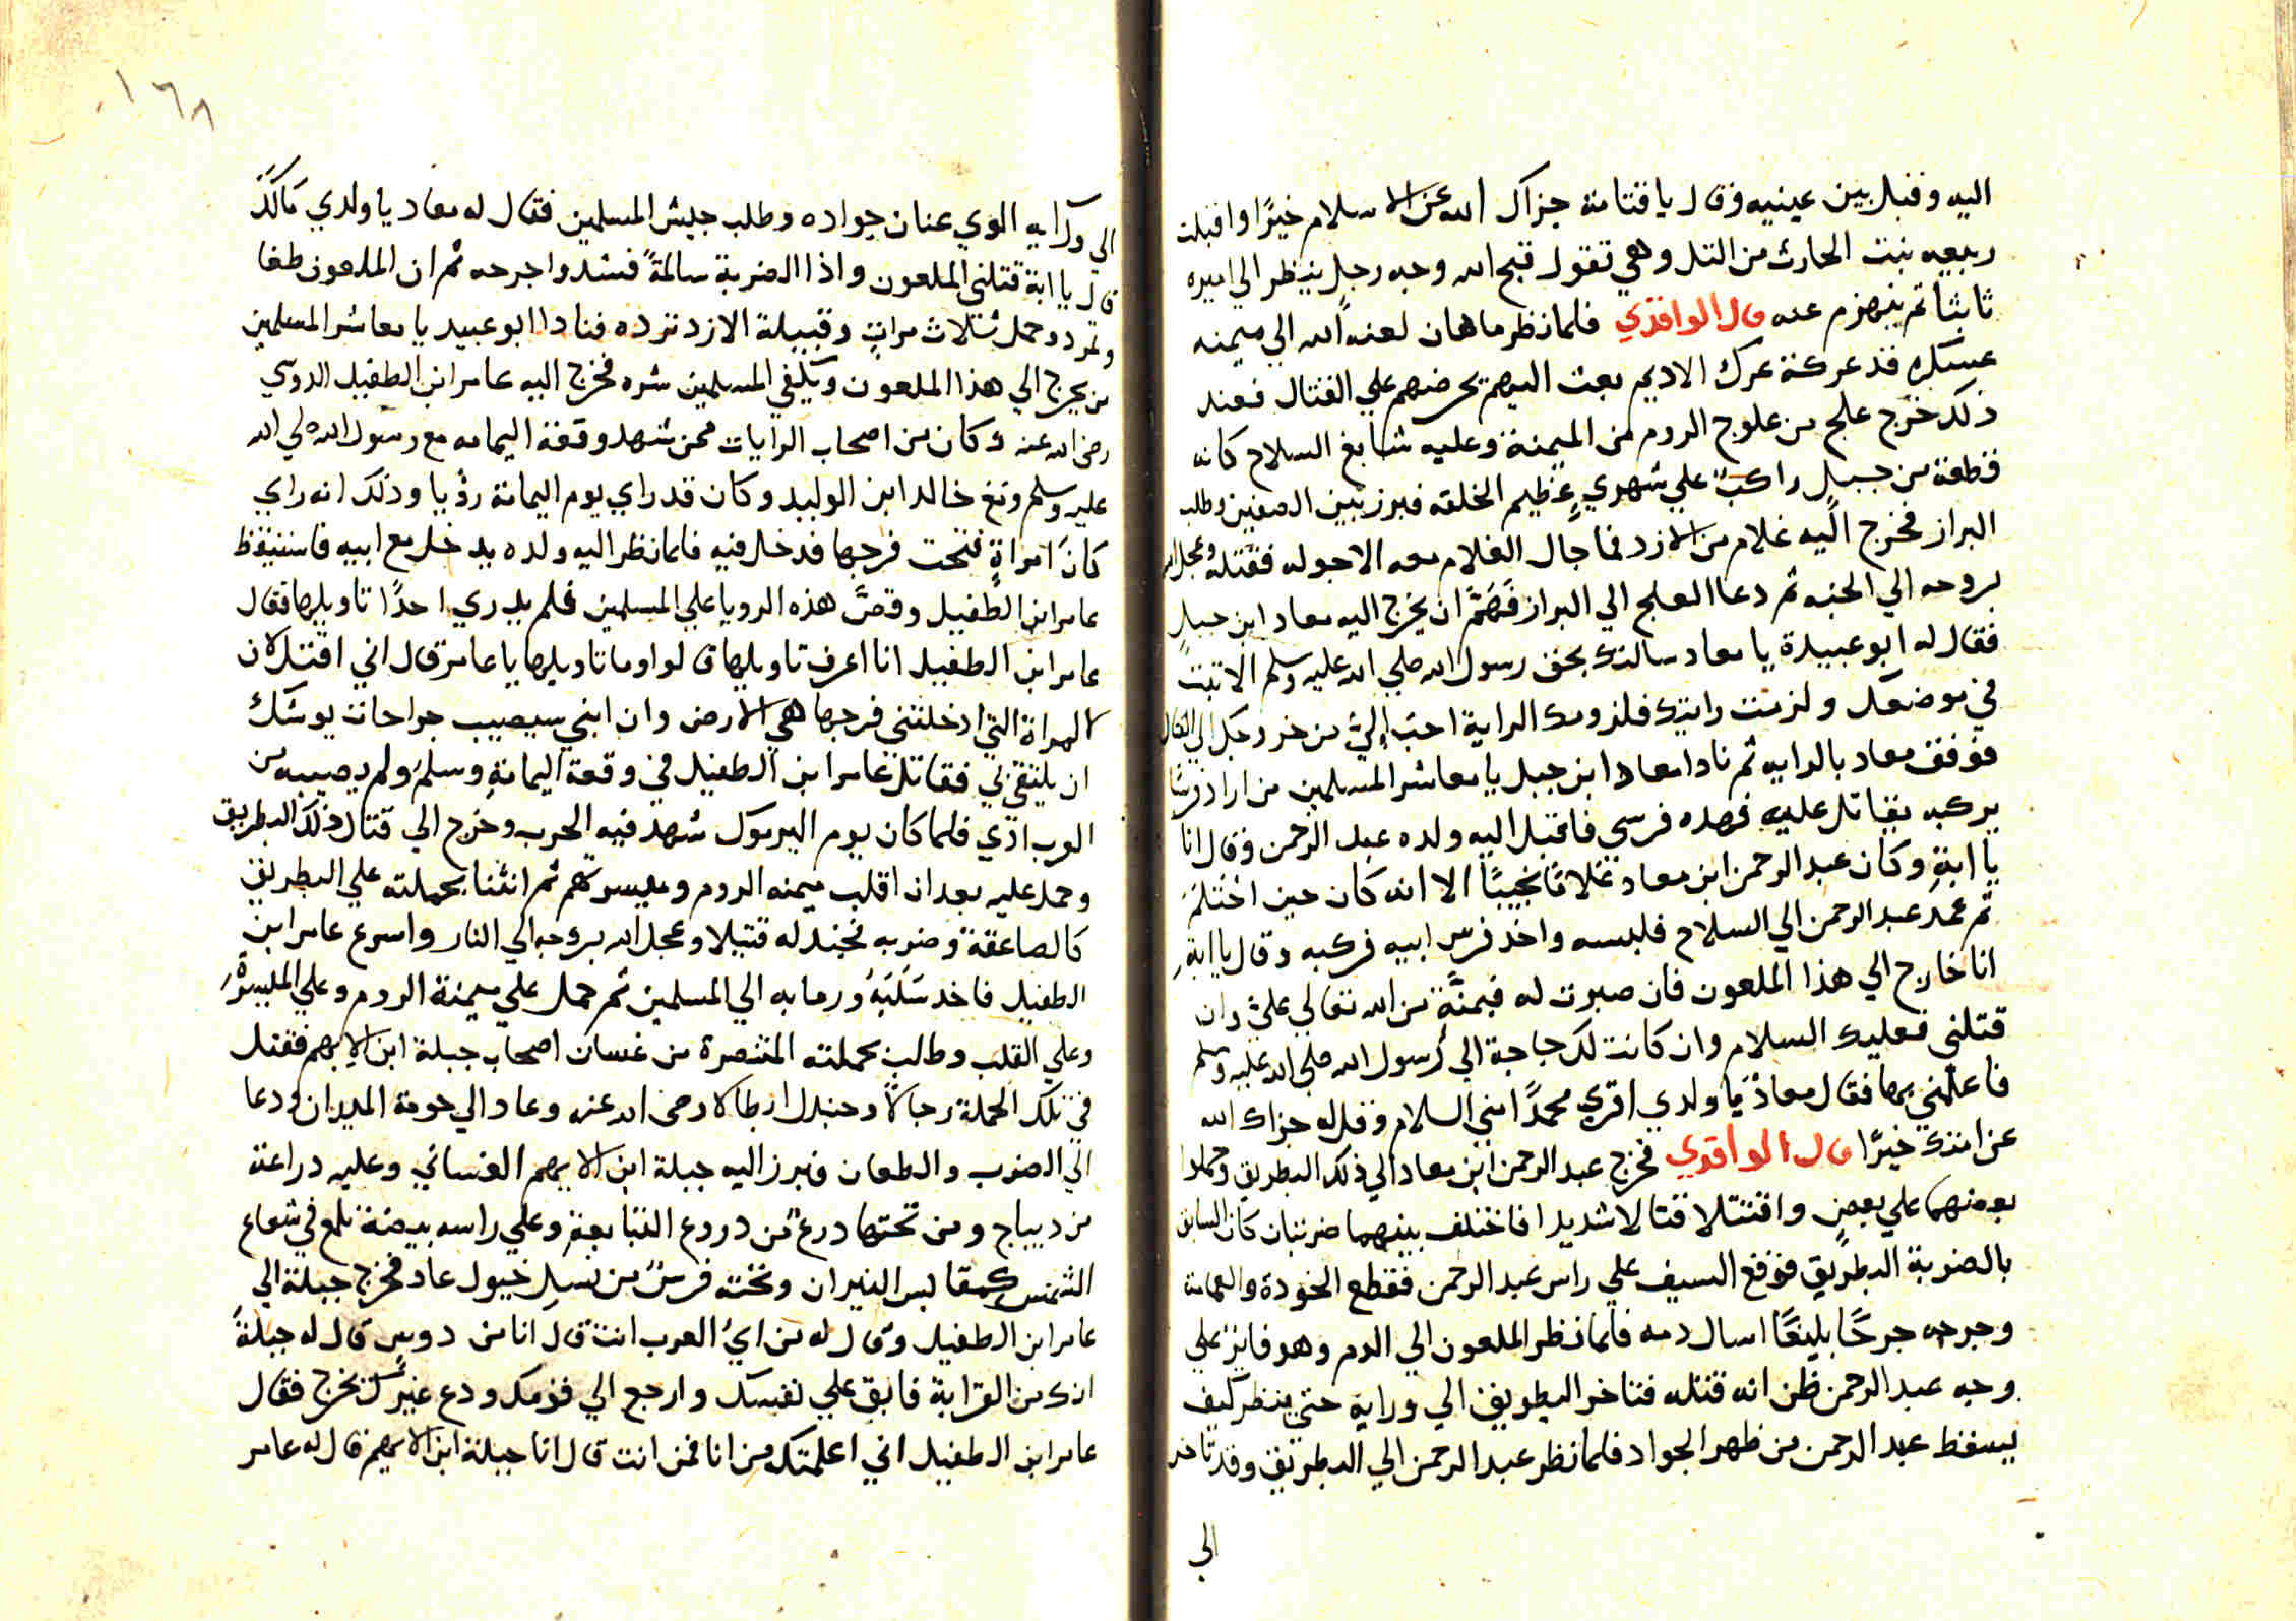 اليه وقبل بين عينيه وقال يا قتامة جزاك الله عن الاسلام خيرًا واقبلت
ربيعه بنت الحارث من التل وهي تقول قبح الله وجه رجل ينظر الي اميره
ثابثا ثم ينهزم عنه قال الواقدي فلما نظر ماهان لعنه الله الي ميمنه
عسكره قد عركته عرك الاديم بعث اليهم يحرضهم علي القتال فعند
ذلك خرج علج من علوج الروم من الميمنة وعليه شابغ السلاح كانه
قطعة من جبل راكبً علي شهري عظيم الخلقه فبرز بين الصفين وطلب
البراز فخرج اليه غلام من الازد فما جال الغلام معه الا جوله فقتله وعجل الله
بروحه الي الجنه ثم دعا العلج الي البراز فَهَمَّ ان يخرج اليه معاد ابن جبل
فقال له ابو عبيدة يا معاد سالتك بحق رسول الله صلي الله عليه وسلم الا تبت
في موضعك ولزمت رايتك فلزومك الراية احب إليّ من خروجك الي القتال
فوقف معاد بالرايه ثم نادا معاد ابن جبل يا معاشر المسلمين من اراد فرسًا
يركبه يقاتل عليه فهده فرسي فاقبل اليه ولده عبد الرحمن وقال انا
يا ابةِ وكان عبد الرحمن ابن معاد غلامًا نجيبًا الا انه كان حين اختلم
ثم عمد عبد الرحمن الي السلاح فلبسه واخد فرس ابيه فركبه وقال يا ابةِ
انا خارج الي هذا الملعون فان صبرت له فبمنَّة من الله تعالي عليّ وان
قتلني فعليك السلام وان كانت لك حاجة الي رسول الله صلي الله عليه وسلم
فاعلمني بها فقال معاذ يا ولدي اقري محمدًا مني السلام وقل له جزاك الله
عن امتك خيرًا قال الواقدي فخرج عبد الرحمن ابن معاد الي ذلك البطريق وحملوا
بعضهما علي بعضٍ واقتتلا قتالا شديدا فاختلف بينهما ضربتان كان السابق
بالضربة البطريق فوقع السيف علي راس عبد الرحمن فقطع الخودة والعمامة
وجرحه جرحًا بليغًا اسال دمه فلما نظر الملعون الي الدم وهو فايز علي
وجه عبد الرحمن ظن انه قتله فتاخر البطريق الي ورايه حتي ينظر كيف
يسقط عبد الرحمن من ظهر الجواد فلما نظر عبد الرحمن الي البطريق وقد تاخر
الي
١٦٨
الي ورايه الوي عنان جواده وطلب جيش المسلمين فقال له معاد يا ولدي مَالَكَ
قال يا ابة قتلني الملعون واذا الضربة سالمةً فشدوا جرحه ثم ان الملعون طغا
وتمرد وحمل ثلاث مراتٍ وقبيلة الازد ترده فنادا ابو عبيد يا معاشر المسلمين
من يخرج الي هذا الملعون ويكفي المسلمين شره فخرج اليه عامر ابن الطفيل الدوسي
رضي الله عنه وكان من اصحاب الرايات ممن شهد وقعة اليمامه مع رسول الله صلي الله
عليه وسلم ومع خالد ابن الوليد وكان قد راي يوم اليمامة رؤيا وذلك انه راي
كانَ امراةٍ فتحت فرجها فدخل فيه فلما نظر اليه ولده يدخل مع ابيه فاستيقظ
عامر ابن الطفيل وقصَّ هذه الرويا علي المسلمين فلم يدري احدًا تاويلها فقال
عامر ابن الطفيل انا اعرف تاويلها قالوا وما تاويلها يا عامر قال اني اقتل لان
المراة التي ادخلتني فرجها هي الارض وان ابني سيصيب جراحات يوشك
ان يلتقي بي فقاتل عامر ابن الطفيل في وقعة اليمامة وسلمَ ولم يصيبه من
العرب اذي فلما كان يوم اليرموك شهد فيه الحرب وخرج الي قتال ذلك البطريق
وحمل عليه بعد ان اقلب ميمنه الروم وميسرتهم ثم انثنا بحملته علي البطريق
كالصاعقة وضربه فجندله قتيلا وعجل الله بروحه الي النار واسرع عامر ابن
الطفيل فاخد سَلَبَهُ ورما به الي المسلمين ثم حمل علي ميمنة الروم وعلي الميسرة
وعلي القلب وطالب بحملته المتنصرة من غسان اصحاب جبلة ابن الايهم فقتل
في تلك الحملة رجالاً وجندل ابطالا رضي الله عنه وعاد الي حومة الميدان ودعا
الي الضرب والطعان فبرز اليه جبلة ابن الايهم الغساني وعليه دراعة
من ديباج ومن تحتها درعً من دروع التبابعةِ وعلي راسه بيضة تلمع في شعاع
الشمس كمقابس النيران وتحته فرسٌ من نسل خيول عاد فخرج جبلة الي
عامر ابن الطفيل وقال له من ايُ العرب انت قال انا من دوس قال له جبلةً
انك من القرابة فابق علي نفسك وارجع الي قومك ودع غيرك يخرج فقال
عامر ابن الطفيل اني اعلمتك من انا فمن انت قال انا جبلة ابن الايهم قال له عامر